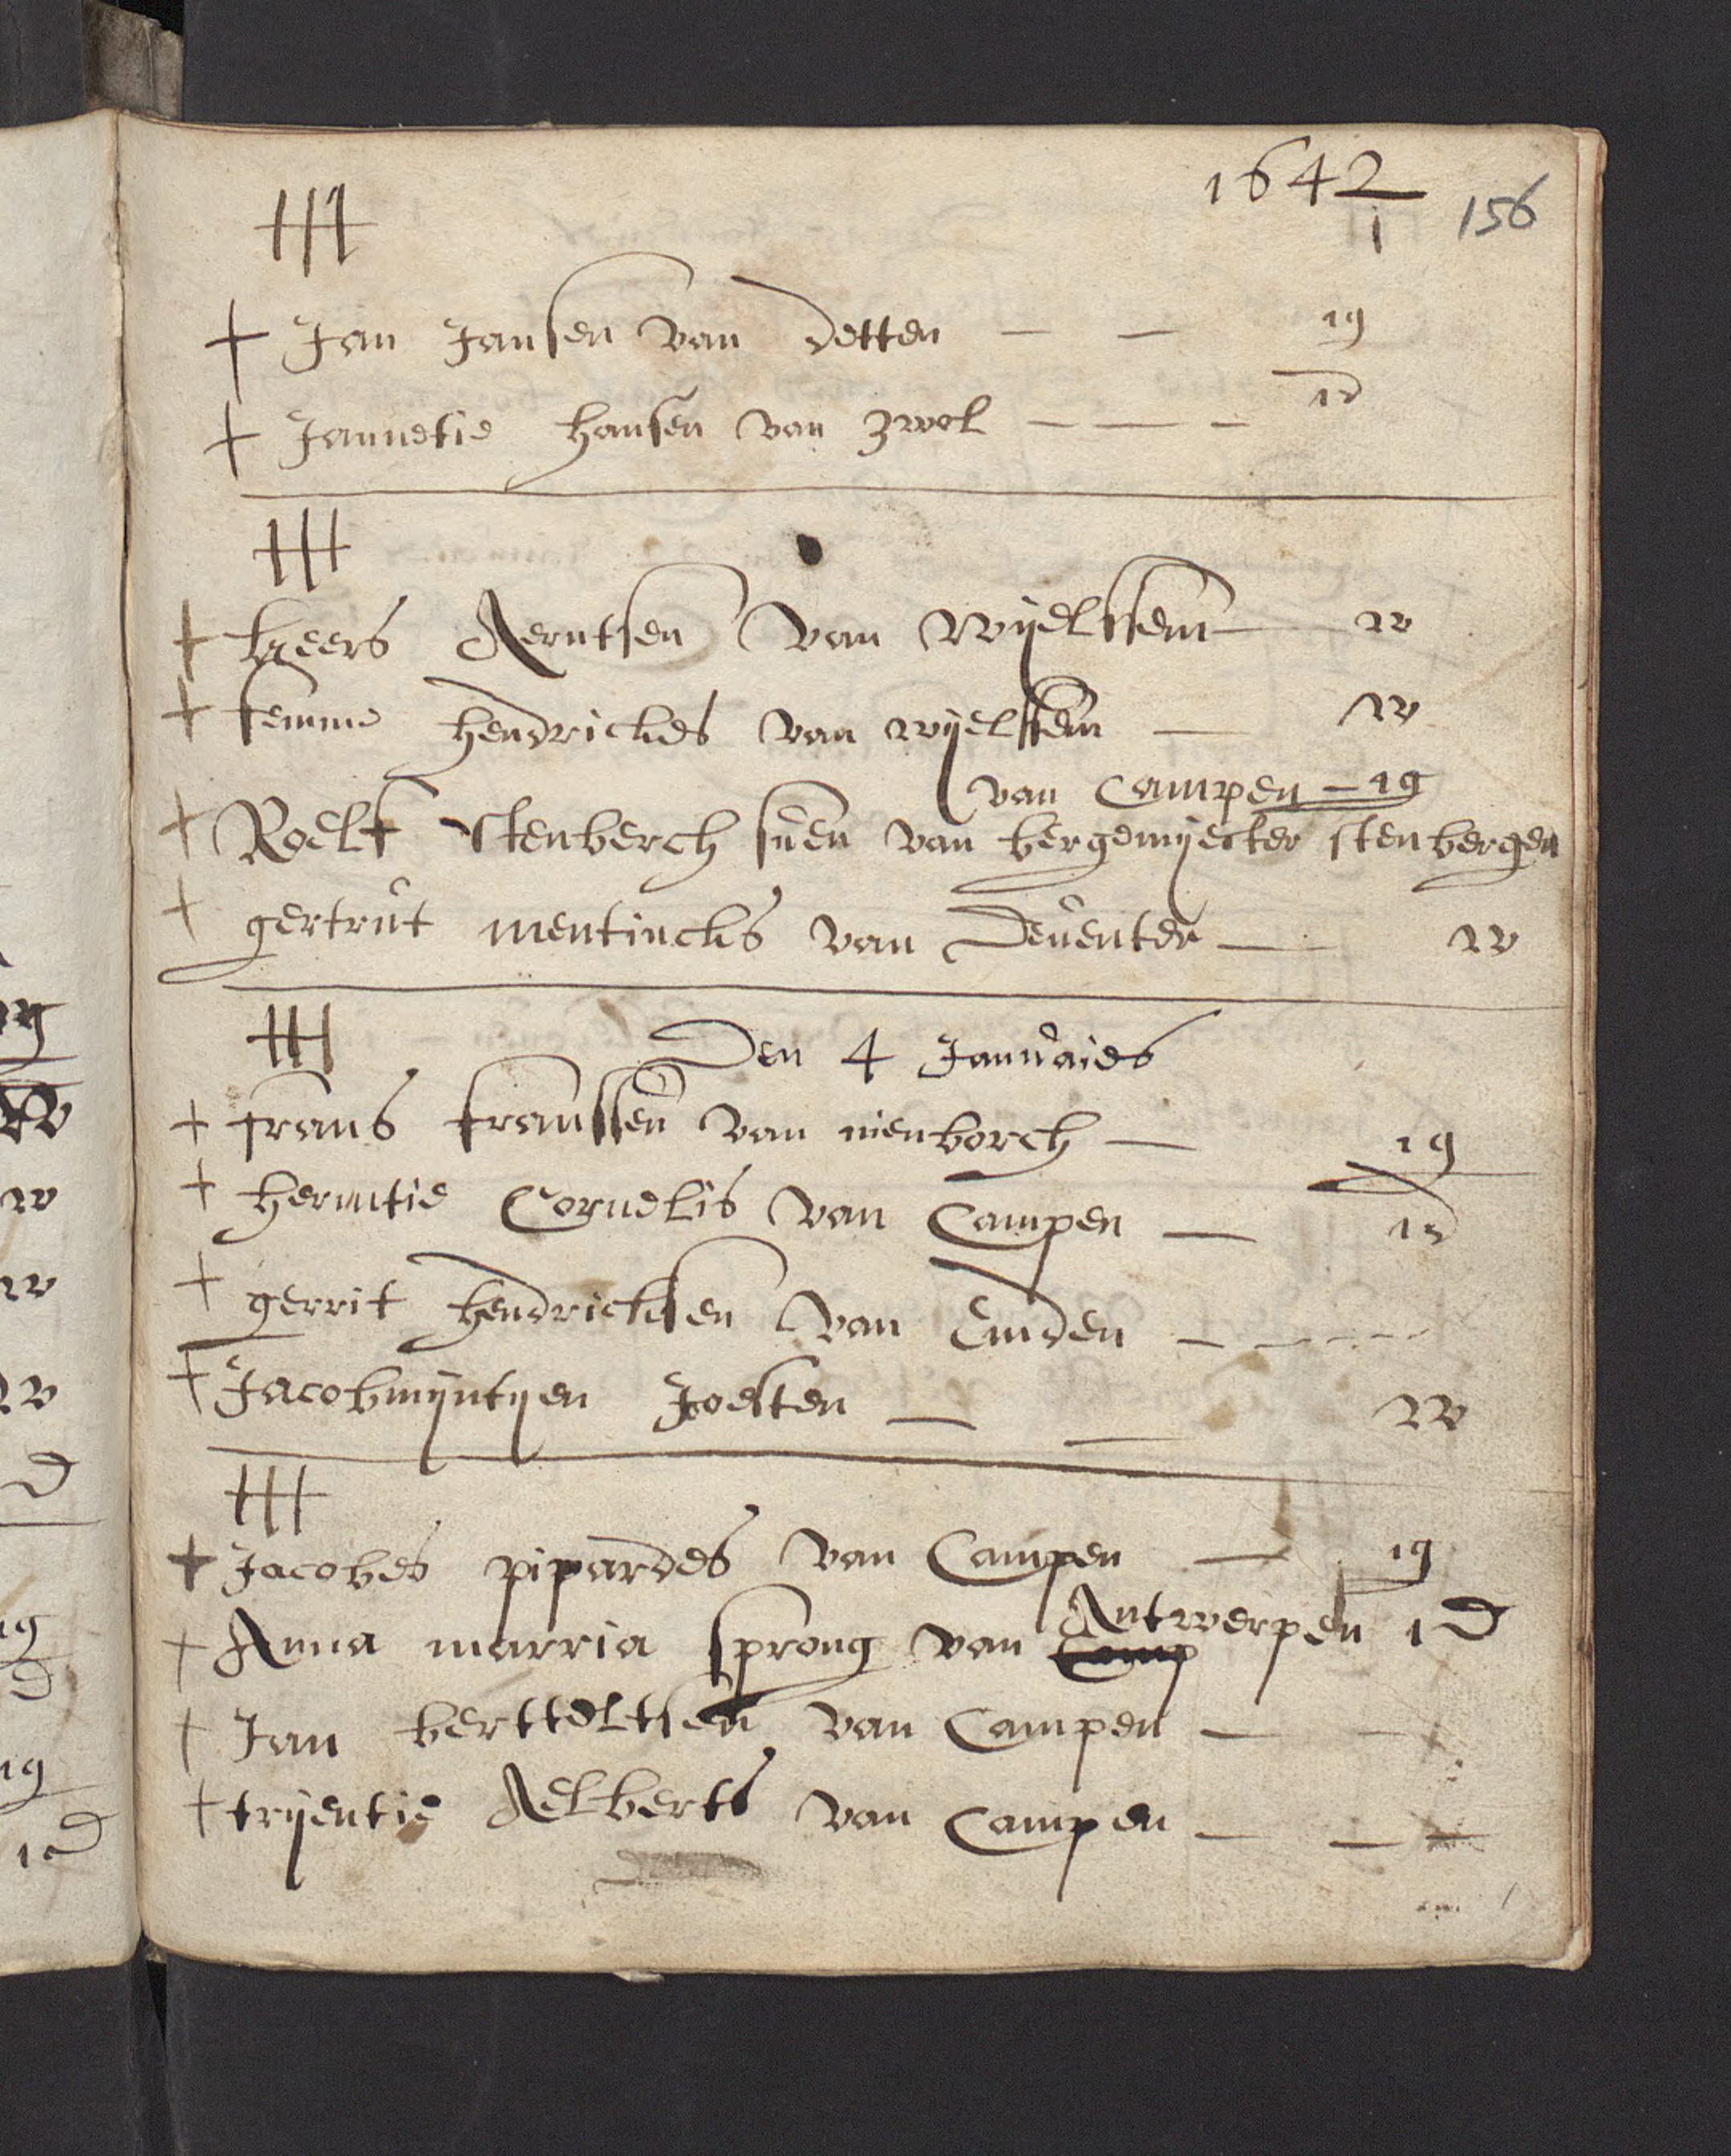 1642
1
156
Jan Jansen van Detten — — 19
Jannetie hansen van Zwol — — — 1D
heers Aerntsen van Wijelssem — 1W
femme hendrickes van wijelssem — 1W
van Campen — 19
Roelf Stenberch suen van bergemyester stenbergen
gertrut mentincks van Deuenter — 1W
Den 4 Januaies
frans franssen van nienborch — 19
hermtie Cornelis van Campen — 1D
gerrit hendricksen van Emden — — — —
Jacobmyntyen Joesten — — 1W
Jacobes pipardes van Campen — 19
Antwerpen 1D
Anna marria sprong van Camp
Jan berttoltsen van Campen — —
tryentie Aelberts van Campen — — —